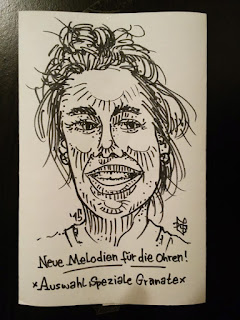 Neue Melodien für die Ohren!
*Auswahl Speziale Granate*